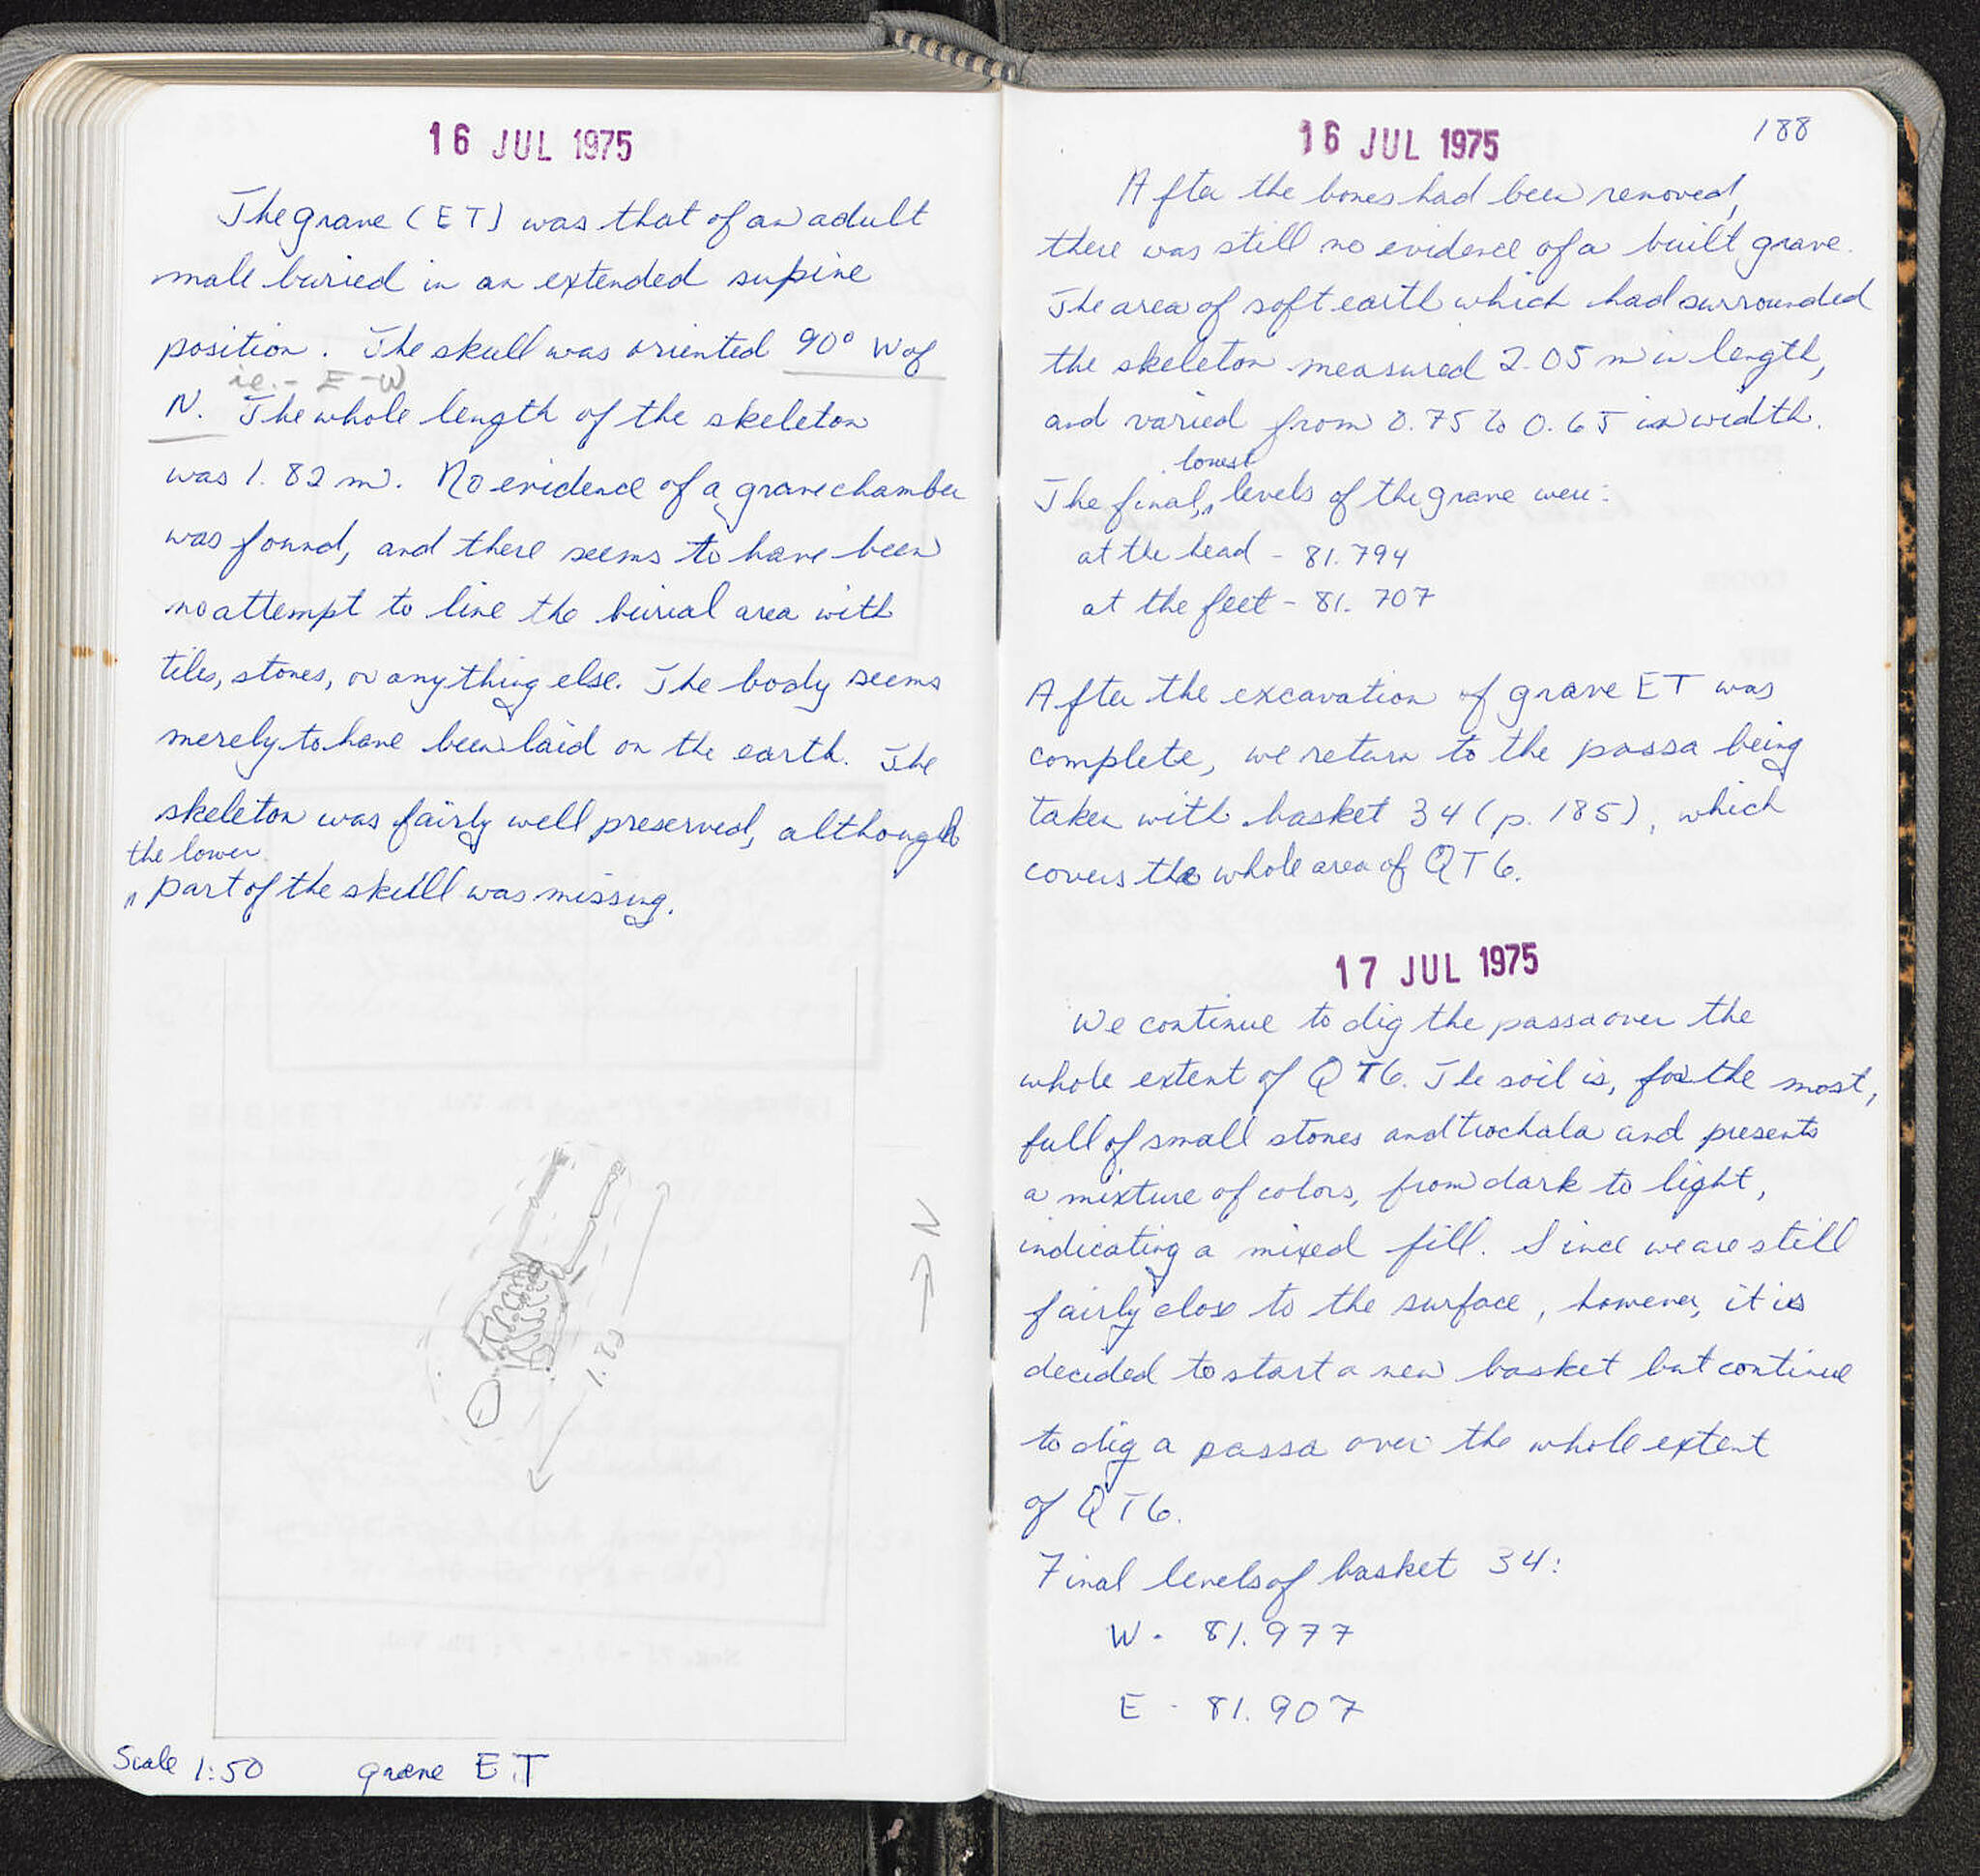 16 JUL 1975
The grave (ET) was that of an adult
male buried in an extended supine
position. The skull was oriented 90° W of
ie. - E-W
N. The whole length of the skeleton
was 1.82 m. No evidence of a grave chamber
was found, and there seems to have been
no attempt to line the burial area with
tiles, stones, or anything else. The body seems
merely to have been laid on the earth. The
skeleton was fairly well preserved, although
the lower
part of the skull was missing.
→ N
1.82
Scale 1:50 grave ET
16 JUL 1975 188
After the bones had been removed,
there was still no evidence of a built grave.
The area of soft earth which had surrounded
the skeleton measured 2.05 m in length,
and varied from 0.75 to 0.65 in width.
lowest
The final, levels of the grave were:
at the head - 81.794
at the feet - 81.707
After the excavation of grave ET was
complete, we return to the passa being
taken with basket 34 (p. 185), which
covers the whole area of QT6.
17 JUL 1975
We continue to dig the passa over the
whole extent of QT6. The soil is, for the most,
full of small stones and trochala and presents
a mixture of colors, from dark to light,
indicating a mixed fill. Since we are still
fairly close to the surface, however, it is
decided to start a new basket but continue
to dig a passa over the whole extent
of QT6.
Final levels of basket 34:
W - 81.977
E - 81.907